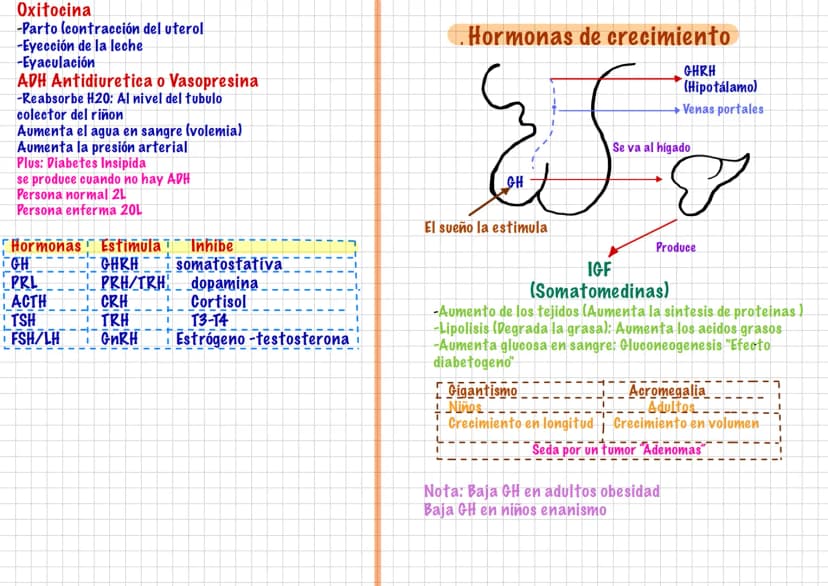 Oxitocina
-Parto (contracción del uterol
-Eyección de la leche
-Eyaculación
ADH Antidiuretica o Vasopresina
-Reabsorbe H2O: Al nivel del tubulo
colector del riñon
Aumenta el agua en sangre (volemia)
Aumenta la presión arterial
Plus: Diabetes Insipida
se produce cuando no hay ADH
Persona normal 2L
Persona enferma 20L
Hormonas Estimula Inhibe
GH GHRH somatostativa
PRL PRH/TRH dopamina
ACTH CRH Cortisol
TSH TRH T3-T4
FSH/LH GnRH Estrógeno -testosterona
. Hormonas de crecimiento
GHRH
(Hipotálamo)
Venas portales
Se va al hígado
GH
El sueño la estimula
Produce
IGF
(Somatomedinas)
-Aumento de los tejidos (Aumenta la sintesis de proteinas )
-Lipolisis (Degrada la grasa): Aumenta los acidos grasos
-Aumenta glucosa en sangre: Gluconeogenesis "Efecto
diabetogeno"
Gigantismo Acromegalia
Niños Adultos
Crecimiento en longitud Crecimiento en volumen
Seda por un tumor "Adenomas"
Nota: Baja GH en adultos obesidad
Baja GH en niños enanismo